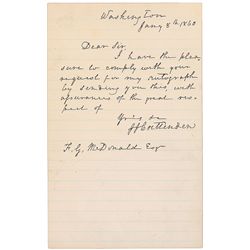 Washington
Jany 8th 1860
Dear Sir
I have the plea
sure to comply with your
request for my autograph
by sending you this, with
assurances of the great res
pect of
Yours &c
J J Crittenden
F. G. McDonald Esq